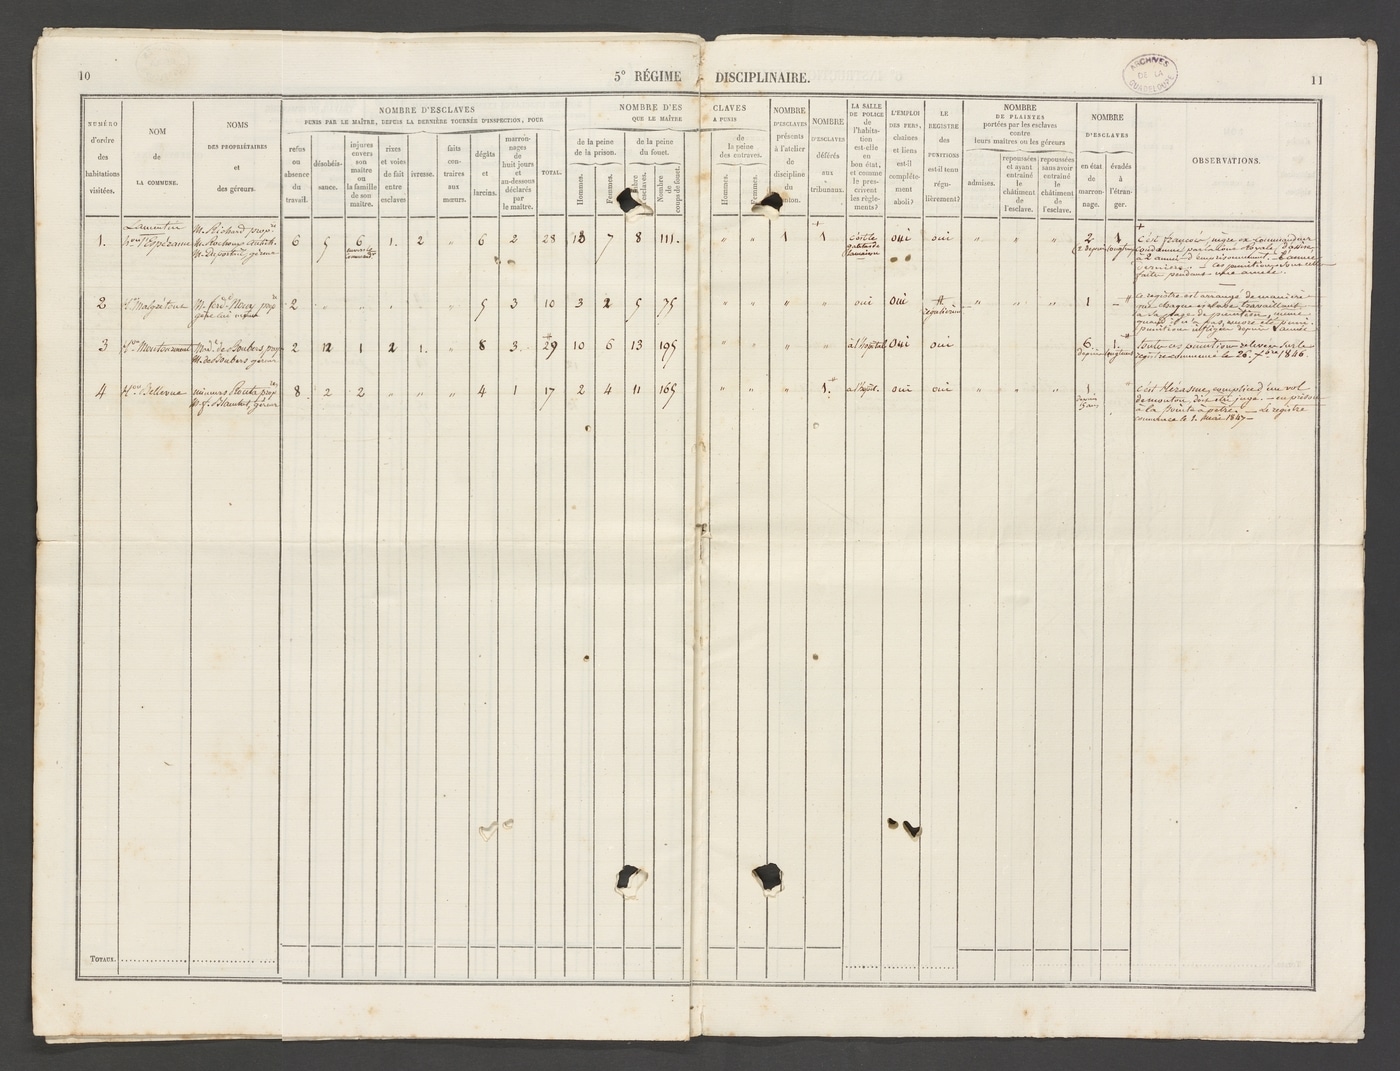 10
5° RÉGIME DISCIPLINAIRE.
ARCHIVES
DE LA
GUADELOUPE
11
NUMÉRO
d'ordre
des
habitations
visitées.
NOM
de
LA COMMUNE.
NOMS
DES PROPRIÉTAIRES
et
des géreurs.
NOMBRE D'ESCLAVES
PUNIS PAR LE MAÎTRE, DEPUIS LA DERNIÈRE TOURNÉE D'INSPECTION, POUR
refus
ou
absence
du
travail.
désobéis-
sance.
injures
envers
son
maître
ou
la famille
de son
maître.
rixes
et voies
de fait
entre
esclaves
ivresse.
faits
con-
traires
aux
mœurs.
dégâts
et
larcins.
marron-
nages
de
huit jours
et
au-dessous
déclarés
par
le maître.
TOTAL.
NOMBRE D'ESCLAVES
QUE LE MAÎTRE A PUNIS
de la peine
de la prison.
Hommes.
Femmes.
de la peine
du fouet.
Nombre
d'esclaves.
Nombre
de
coups de fouet.
de
la peine
des entraves.
Hommes.
Femmes.
NOMBRE
D'ESCLAVES
présents
à l'atelier
de
discipline
du
canton.
NOMBRE
D'ESCLAVES
déférés
aux
tribunaux.
LA SALLE
DE POLICE
de
l'habita-
tion
est-elle
en
bon état,
et comme
le pres-
crivent
les règle-
ments?
L'EMPLOI
DES FERS,
chaînes
et liens
est-il
complète-
ment
aboli?
LE
REGISTRE
des
PUNITIONS
est-il tenu
régu-
lièrement?
NOMBRE
DE PLAINTES
portées par les esclaves
contre
leurs maîtres ou les géreurs
admises.
repoussées
et ayant
entraîné
le
châtiment
de
l'esclave.
repoussées
sans avoir
entraîné
le
châtiment
de
l'esclave.
NOMBRE
D'ESCLAVES
en état
de
marron-
nage.
évadés
à
l'étran-
ger.
OBSERVATIONS.
Lamentin
1. hon l'Espérance M. Richard propre 6 5 6 1. 2 " 6 2 28 13 7 8 111. " " 1 1 oui oui " " " 2 1
C'est françois, nègre ex commandeur
condamné par la Cour Royale d'assise
à 2 années d'emprisonnement. L'année
dernière. — Ces punitions
faite pendant une année.
2 hon Malgrétout 2 " " " " " 5 3 10 3 2 5 75 " " " " oui oui " " " 1 — "
gère lui même
Ce registre est arrangé de manière
que chaque esclave travaillant
a sa page de punition, même
quand il n'a pas encore été puni.
punition infligée depuis l'année
3 hon Montauvant 2 12 1 2 1. " 8 3. 29 10 6 13 195 " " " " à l'hôpital oui oui " " " 6 1.
M. de Boubers géreur
depuis longtems
toutes ces punitions relevées sur le
registre commencé le 26 7bre 1846.
4 hon Bellevue 8. 2 2 " " " 4 1 17 2 4 11 165 " " " 1. a l'hôpit. oui oui " " " 1 "
depuis
15 ans
complice d'un vol
de mouton doit être jugé. — en prison
à la Pointe à pitre. — Le registre
commence le 1. Mai 1847 —
TOTAUX.